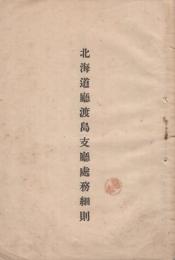 北海道廳渡島支廳處務細則